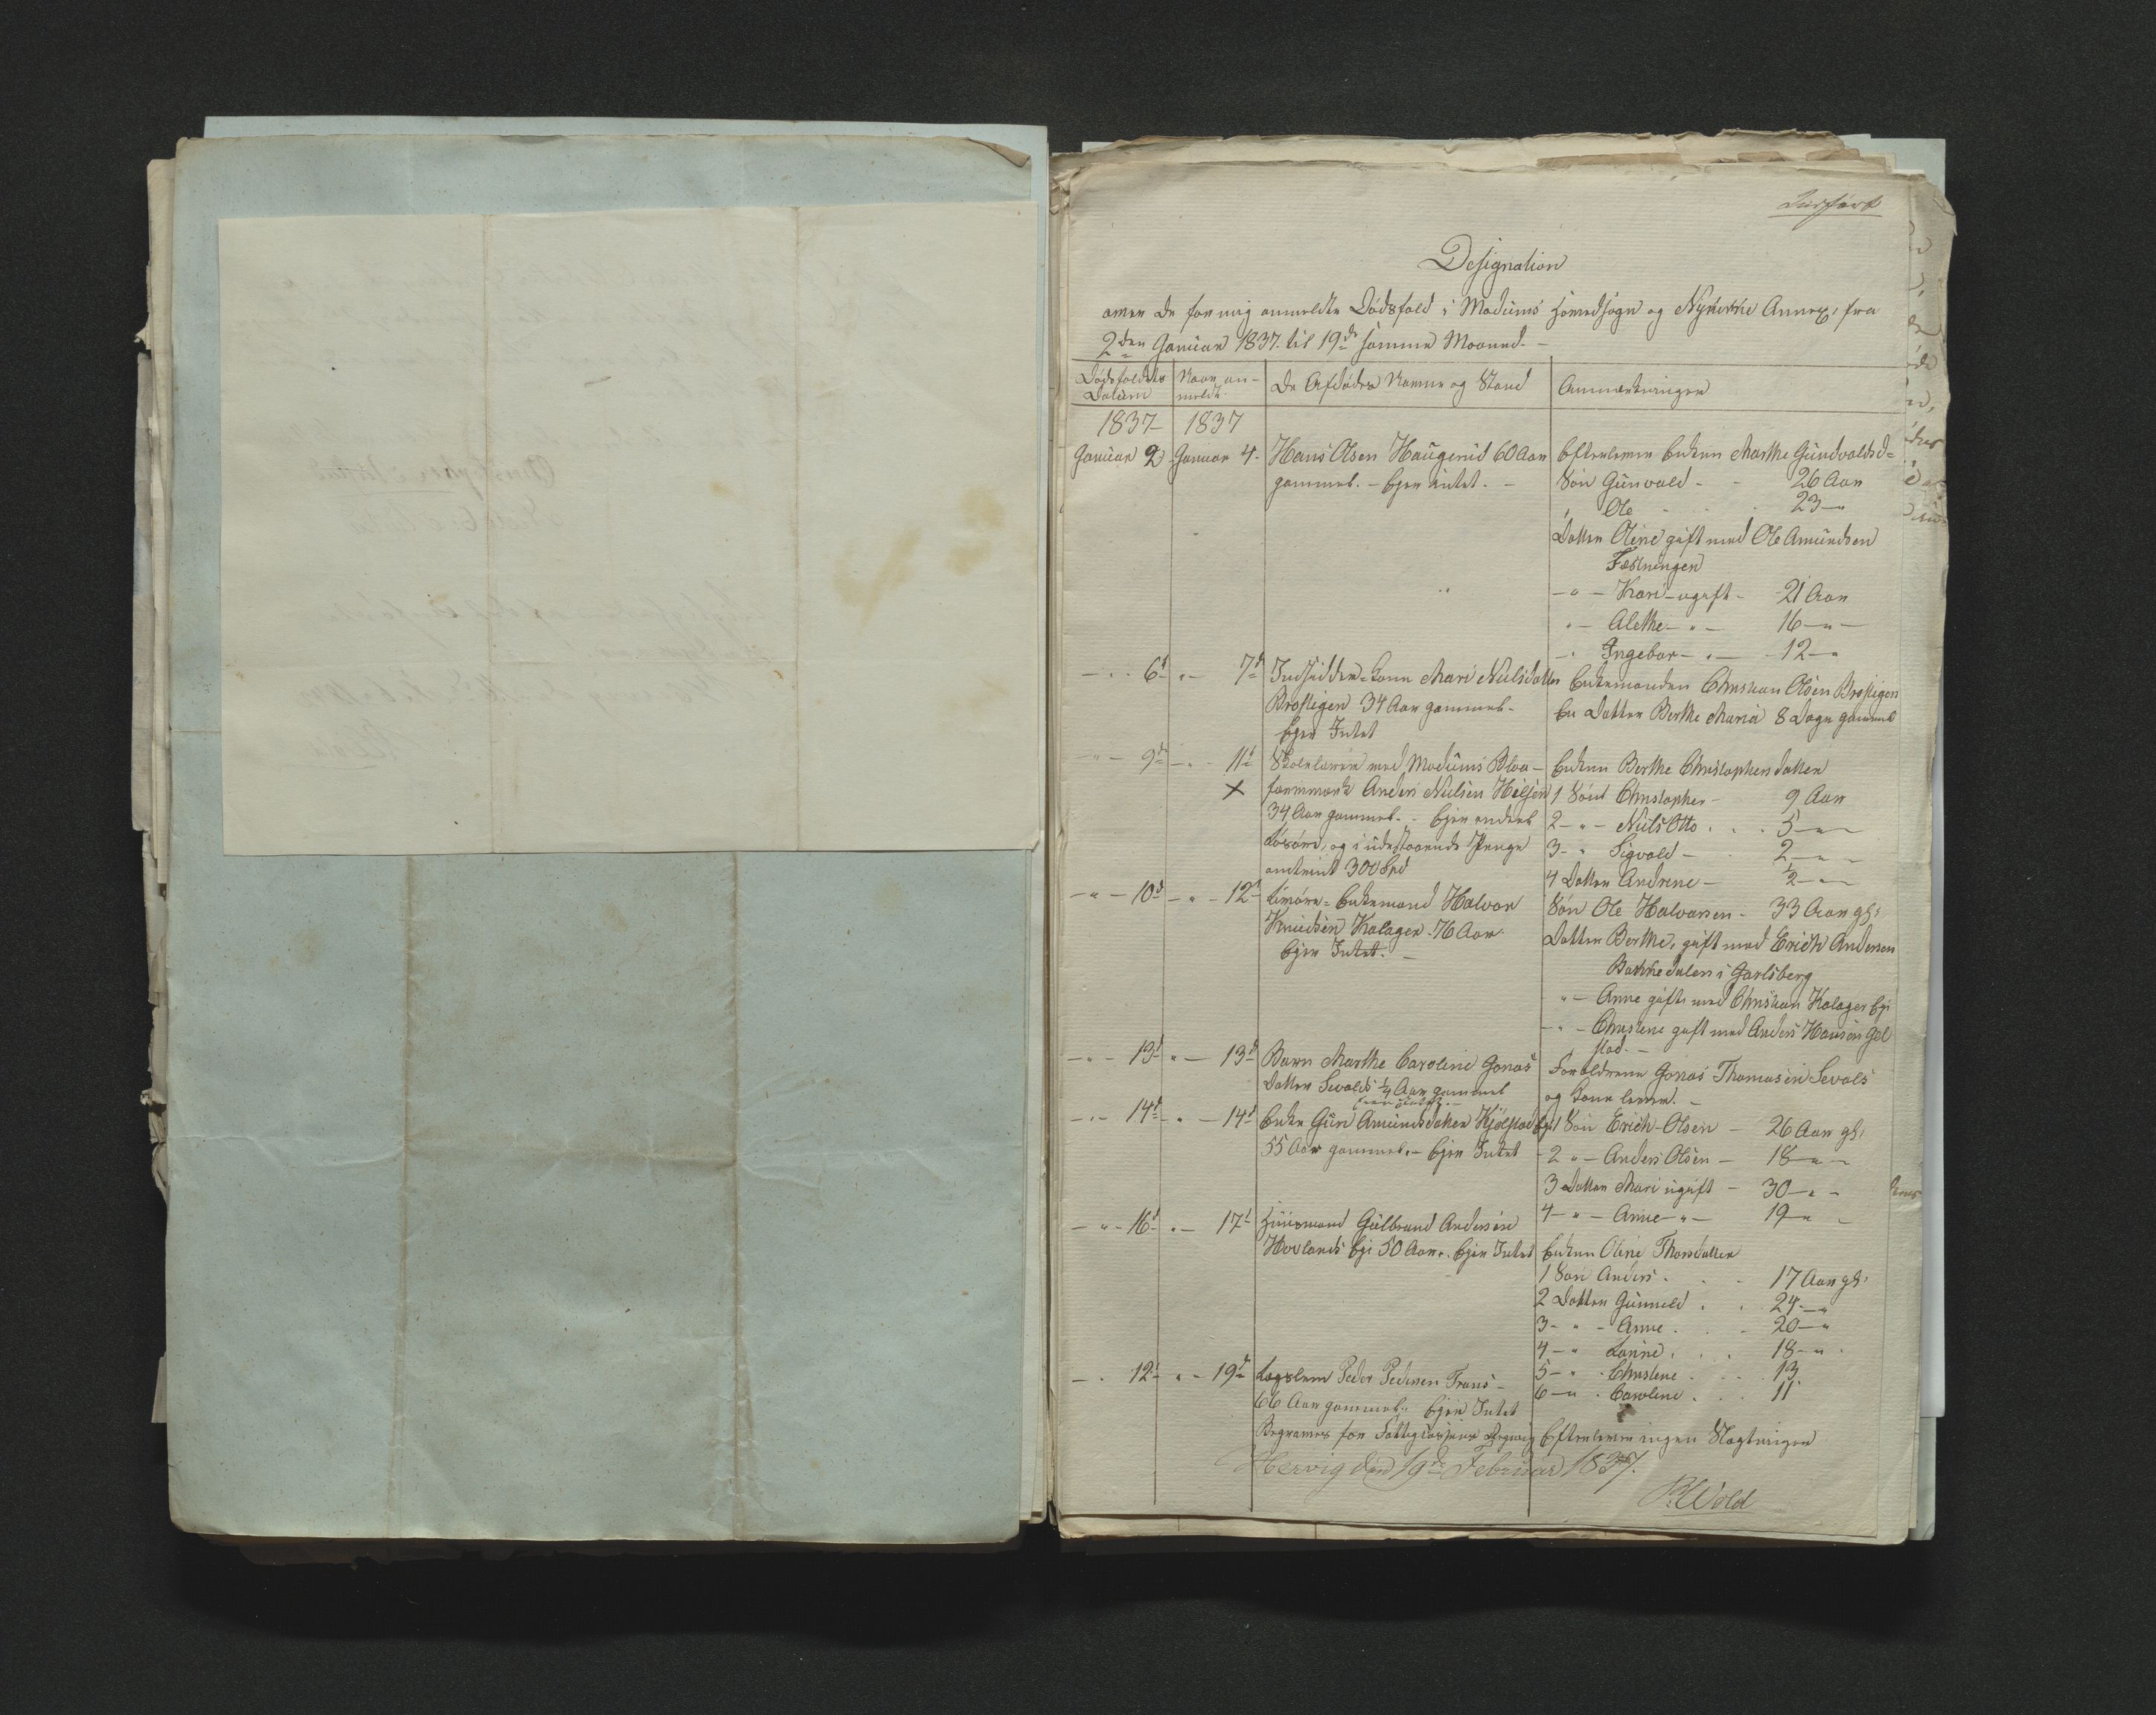 Indført
Designation
over de for mig anmeldte Dødsfald i Modums Hovedsogn og Nykirke Annex, fra
2den Januar 1837. til 19de samme Maaned. -
Dødsfaldets Datum
Naar anmeldt
De Afdødes Navne og Stand
Anmærkninger
1837 1837
Januar 2 Januar 4. Hans Olsen Haugerud 60 Aar
gammel. - Ejer intet. -
Efterlever Enken Marthe Gundvaldsd=
Søn Gunvald - - 26 Aar
" Ole 23 - "
Datter Oline gift med Ole Amundsen
Fæstningen
- " - Kari - ugift - 21 Aar
" - Alethe - " - 16 - " -
- " Ingebor - " - 12 - "
- - 6d " - 7d Indsidder-Kone Mari Nielsdatter
Brostigen 34 Aar gammel -
Ejer Intet
Enkemanden Christian Olsen Brostigen
En Datter Berthe Maria 8 Dage gammel
- " - 9d - " - 11d Skolelærer ved Modums Blaa-
x farveværk Anders Nielsen
34 Aar gammel. - Ejer endeel
Løsøre, og i udestaaende Penge
omtrent 300 Spd
Enken Berthe Christophersdatter
1 Søn Christopher - 9 Aar
2 - " - Niels Otto . . . 5 - " -
3 - " Sigvald - 2 - " -
4 Datter Andrine - ½ - " -
- " - 10d - " - 12d Enkemand Halvor
Knudsen Kalager - 76 Aar.
Ejer Intet. -
Søn Ole Halvorsen - 33 Aar gl:
Datter Berthe, gift med Erich Andersen
Bakkedalen i Jarlsberg
" - Anne gift med Christian Kalager Eje
- " - Christine gift med Anders Hansen Gul
stad. -
- " - 13d " - 13d Barn Marthe Caroline Jonas
Datter Sevalds ¼ Aar gammel
Forældrene Jonas Thomasen Sevals
og Kone lever. -
- " - 14d - " - 14d Enke Guri Amundsdatter Kjølstad Eje
55 Aar gammel. - Ejer Intet
1 Søn Erich Olsen - 26 Aar gl:
2 " - Anders Olsen - 18 - " -
3 Datter Mari ugift - 30 - " -
4 - " - Anne - " - 19 - " -
- " - 16d " - 17d Huusmand Gulbrand Andersen
Hovlands Eje 50 Aar. Ejer Intet
Enken Oline Thorsdatter
1 Søn Anders . . - 17 Aar gl:
2 Datter Gunnild . . 24 - "
3 - " - Anne . . - 20 - "
4 - " 18 - " .
5 - " . Christine . . . 13
6 - " . Caroline . . . 11
- . 12d " - 19d Lægslem Peder Pedersen
66 Aar gammel. Ejer Intet
Begraves for Fattigkassens Regning
Efterlever ingen Slægtninger
den 19de Februar 1837.
Wold